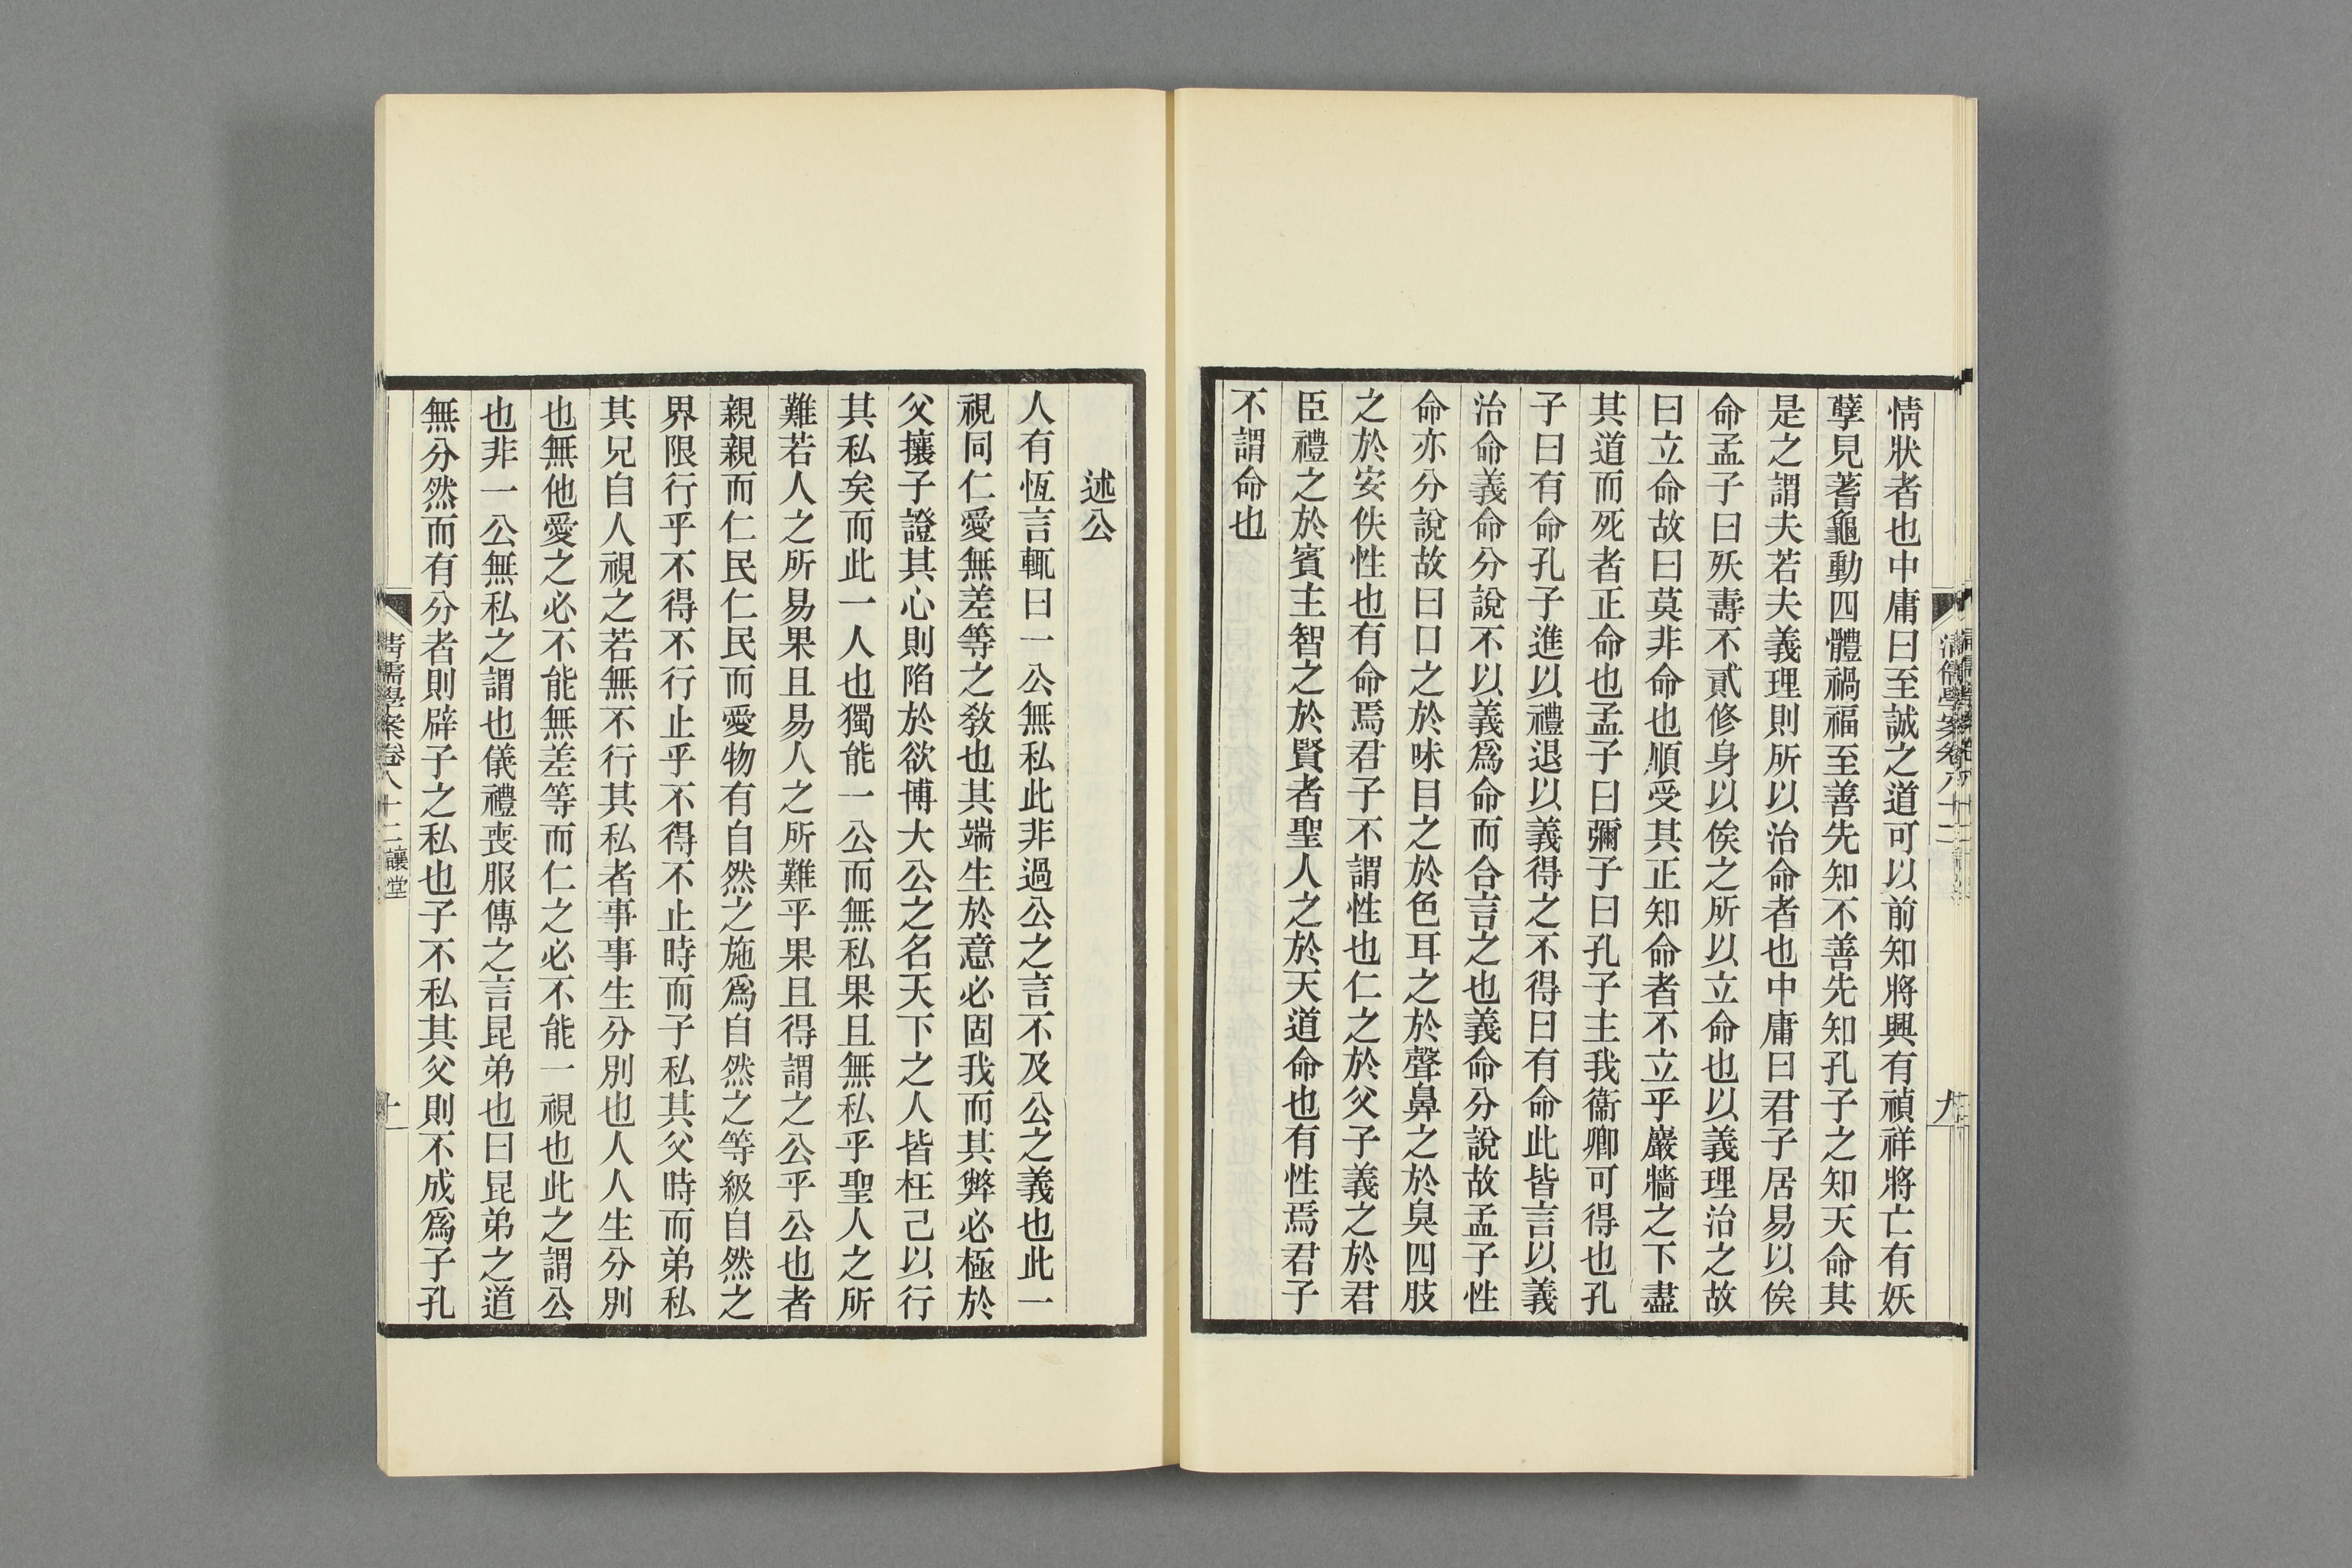 情狀者也中庸曰至誠之道可以前知將興有禎祥將亡有妖
孽見蓍龜動四體禍福至善先知不善先知孔子之知天命其
是之謂夫若夫義理則所以治命者也中庸曰君子居易以俟
命孟子曰殀壽不貳修身以俟之所以立命也以義理治之故
曰立命故曰莫非命也順受其正知命者不立乎巖牆之下盡
其道而死者正命也孟子曰彌子曰孔子主我衞卿可得也孔
子曰有命孔子進以禮退以義得之不得曰有命此皆言以義
治命義命分說不以義爲命而合言之也義命分說故孟子性
命亦分說故曰口之於味目之於色耳之於聲鼻之於臭四肢
之於安佚性也有命焉君子不謂性也仁之於父子義之於君
臣禮之於賓主智之於賢者聖人之於天道命也有性焉君子
不謂命也
述公
人有恆言輒曰一公無私此非過公之言不及公之義也此一
視同仁愛無差等之敎也其端生於意必固我而其弊必極於
父攘子證其心則陷於欲博大公之名天下之人皆枉己以行
其私矣而此一人也獨能一公而無私果且無私乎聖人之所
難若人之所易果且易人之所難乎果且得謂之公乎公也者
親親而仁民仁民而愛物有自然之施爲自然之等級自然之
界限行乎不得不行止乎不得不止時而子私其父時而弟私
其兄自人視之若無不行其私者事事生分別也人人生分別
也無他愛之必不能無差等而仁之必不能一視也此之謂公
也非一公無私之謂也儀禮喪服傳之言昆弟也曰昆弟之道
無分然而有分者則辟子之私也子不私其父則不成爲子孔
清儒學案卷八十二
讓堂